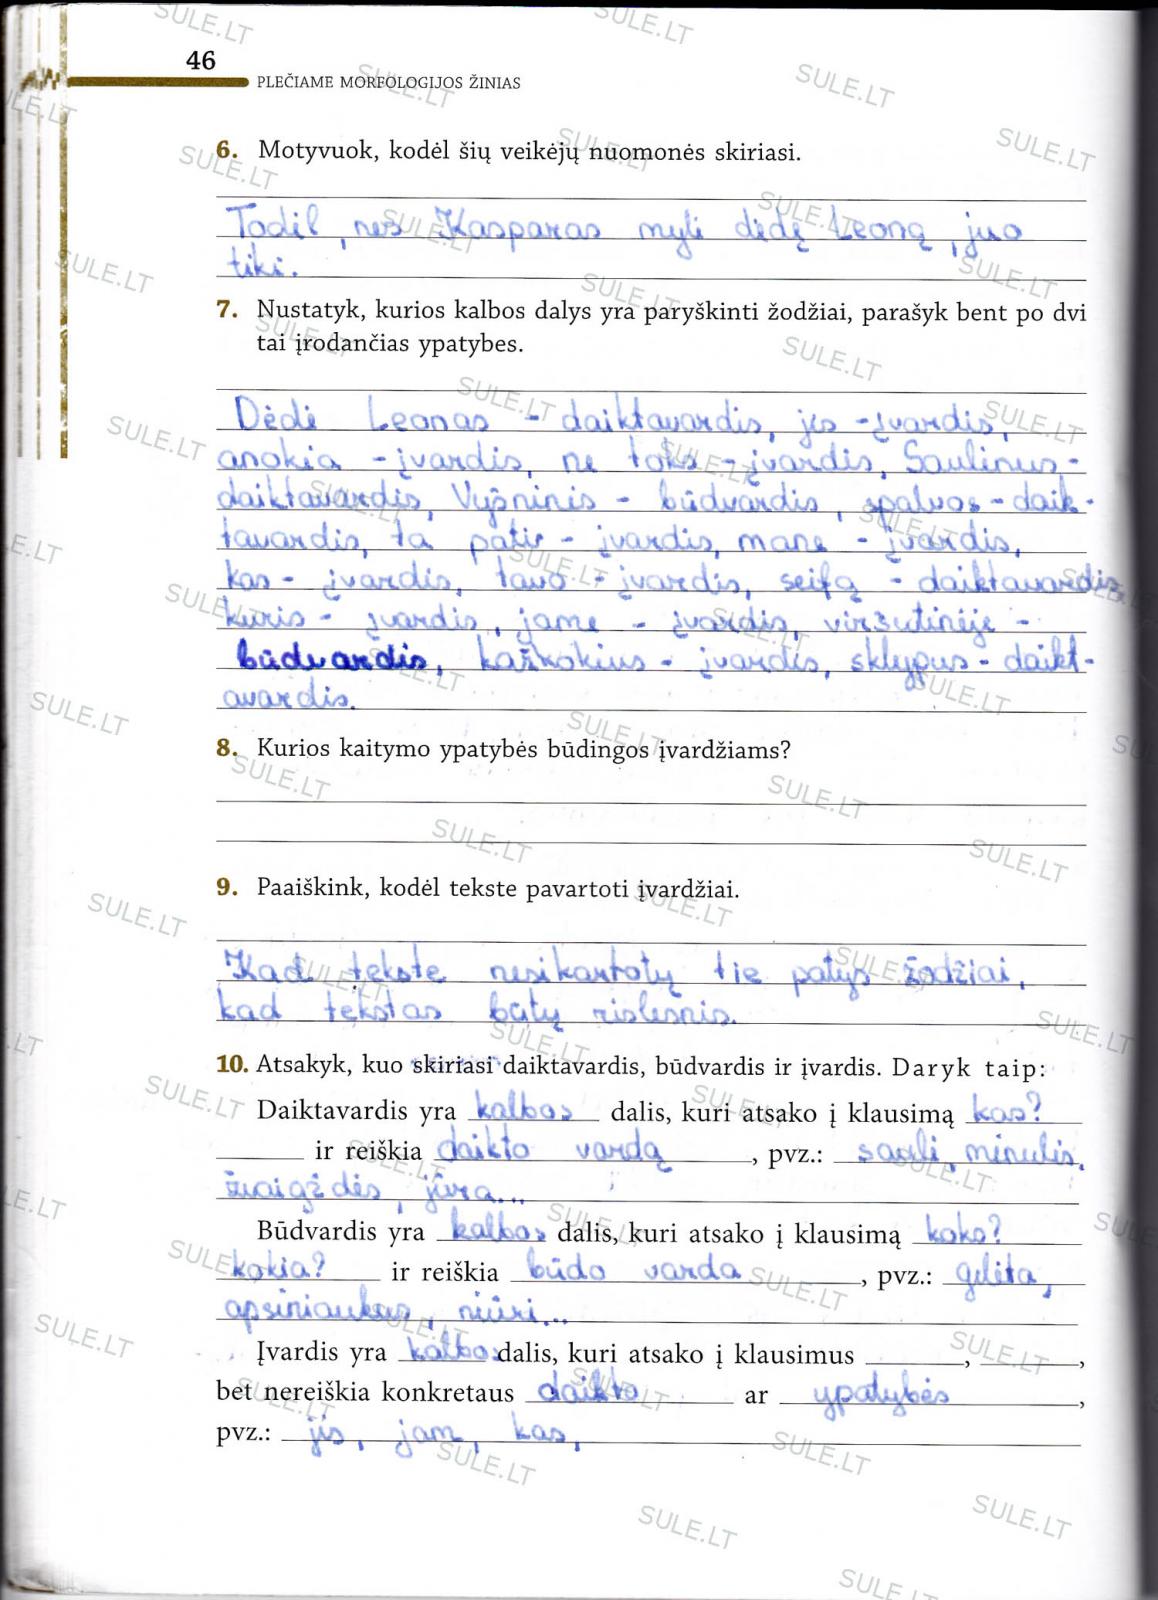 46
PLEČIAME MORFOLOGIJOS ŽINIAS
6. Motyvuok, kodėl šių veikėjų nuomonės skiriasi.
Todėl, nes Kasparas myli dėdę Leoną, juo
tiki.
7. Nustatyk, kurios kalbos dalys yra paryškinti žodžiai, parašyk bent po dvi
tai įrodančias ypatybes.
Dėdė Leonas - daiktavardis, jis - įvardis,
anokia - įvardis, ne toks - įvardis, Saulinus -
daiktavardis, Vyšninis - būdvardis, spalvos - daik-
tavardis, ta pati - įvardis, mane - įvardis,
kas - įvardis, tavo - įvardis, seifą - daiktavardis,
kuris - įvardis, jame - įvardis, viršutinėje -
būdvardis, kažkokius - įvardis, sklypus - daikt-
avardis.
8. Kurios kaitymo ypatybės būdingos įvardžiams?
9. Paaiškink, kodėl tekste pavartoti įvardžiai.
Kad tekste nesikartotų tie patys žodžiai,
kad tekstas būtų rislesnis.
10. Atsakyk, kuo skiriasi daiktavardis, būdvardis ir įvardis. Daryk taip:
Daiktavardis yra kalbos dalis, kuri atsako į klausimą kas?
ir reiškia daikto vardą, pvz.: saulė, mėnulis,
žvaigždės, jūra...
Būdvardis yra kalbos dalis, kuri atsako į klausimą koks?
kokia? ir reiškia būdo varda, pvz.: gėlėta,
apsiniaukus, niūri...
Įvardis yra kalbos dalis, kuri atsako į klausimus ______, ______,
bet nereiškia konkretaus daikto ar ypatybės,
pvz.: jis, jam, kas,
SULE.LT